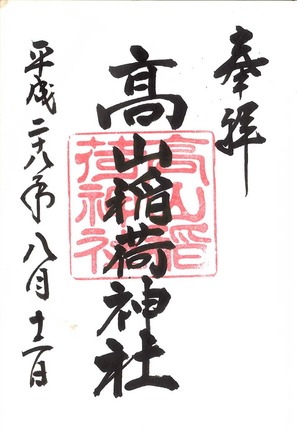 奉拝
髙山稲荷神社
髙山稲荷神社
平成二十八年八月十二日